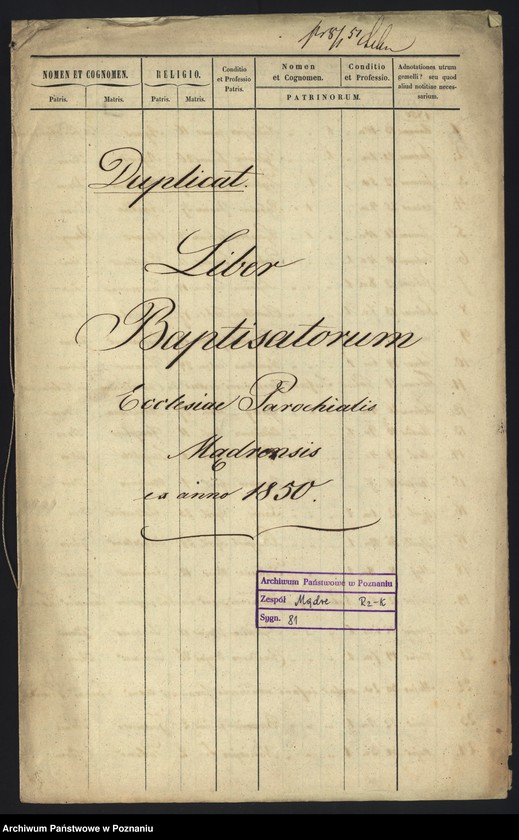 pr 8/1 51
NOMEN ET COGNOMEN.
Patris. Matris.
RELIGIO.
Patris. Matris.
Conditio
et Professio
Patris.
Nomen
et Cognomen.
Conditio
et Professio.
PATRINORUM.
Adnotationes utrum
gemelli? seu quod
aliud notitiae neces-
sarium.
Duplicat.
Liber
Baptisatorum
Ecclesiae Parochialis
Mądrensis
ex anno 1850.
Archiwum Państwowe w Poznaniu
Zespół Mądre Rz-K
Sygn. 81
Archiwum Państwowe w Poznaniu